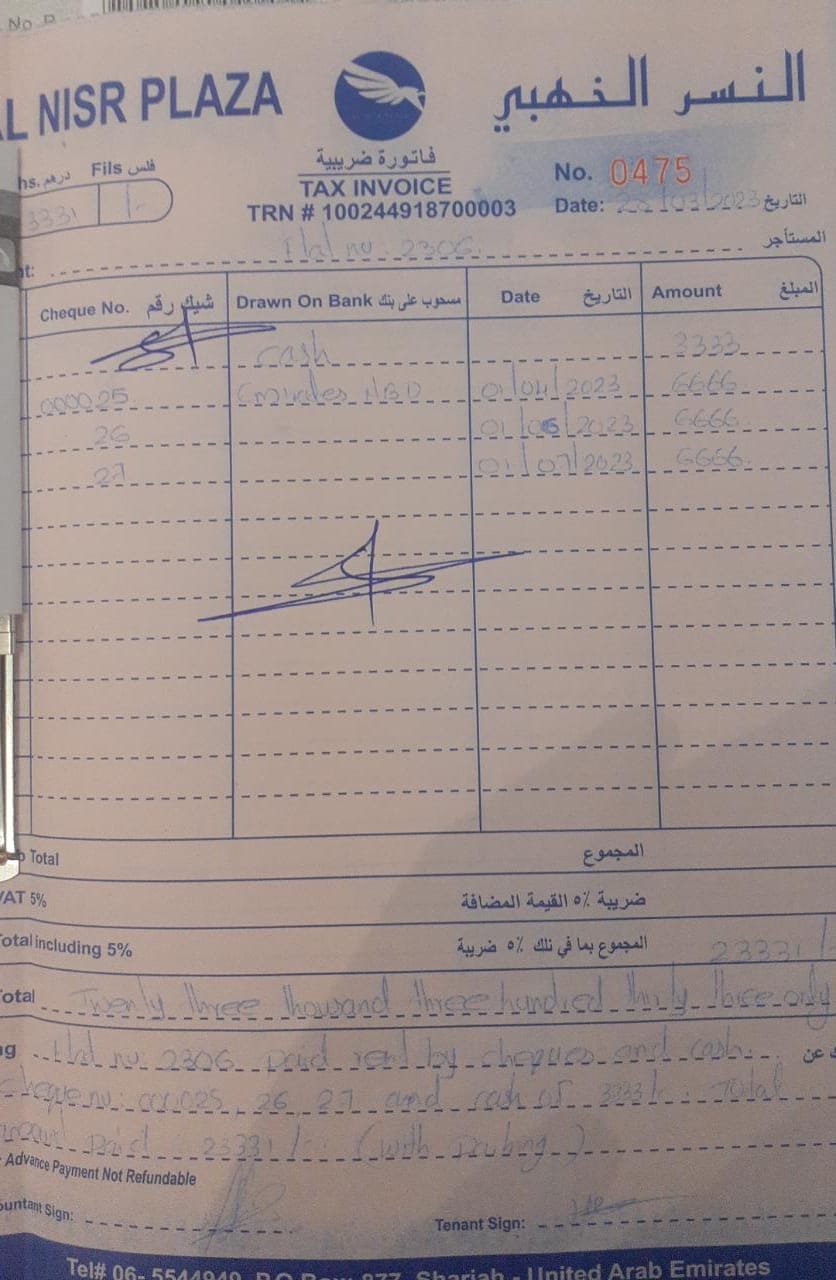 AL NISR PLAZA
النسر الذهبي
فاتورة ضريبية
TAX INVOICE
TRN # 100244918700003
hs. درهم Fils فلس
No. 0475
Date: 03/2023 التاريخ
المستأجر
nt: Flat no: 2306
Cheque No. شيك رقم Drawn On Bank مسحوب على بنك Date التاريخ Amount المبلغ
Cash 3333
000025 Emirates NBD 01/04/2023 6666
26 2023 6666
27 01/07/2023 6666
Total المجموع
VAT 5% ضريبة ٥٪ القيمة المضافة
Total including 5% المجموع بما في ذلك ٥٪ ضريبة 23331/
Total Twenty three thousand three hundred thirty three only
Flat no: 2306 Paid rent by cheques and cash.
Cheque no: 000025, 26, 27 and cash of 3333/- Total
amount paid: 23331/- (with
Advance Payment Not Refundable
ountant Sign: Tenant Sign:
Tel# 06- 5544949, P.O Box: 977, Sharjah - United Arab Emirates